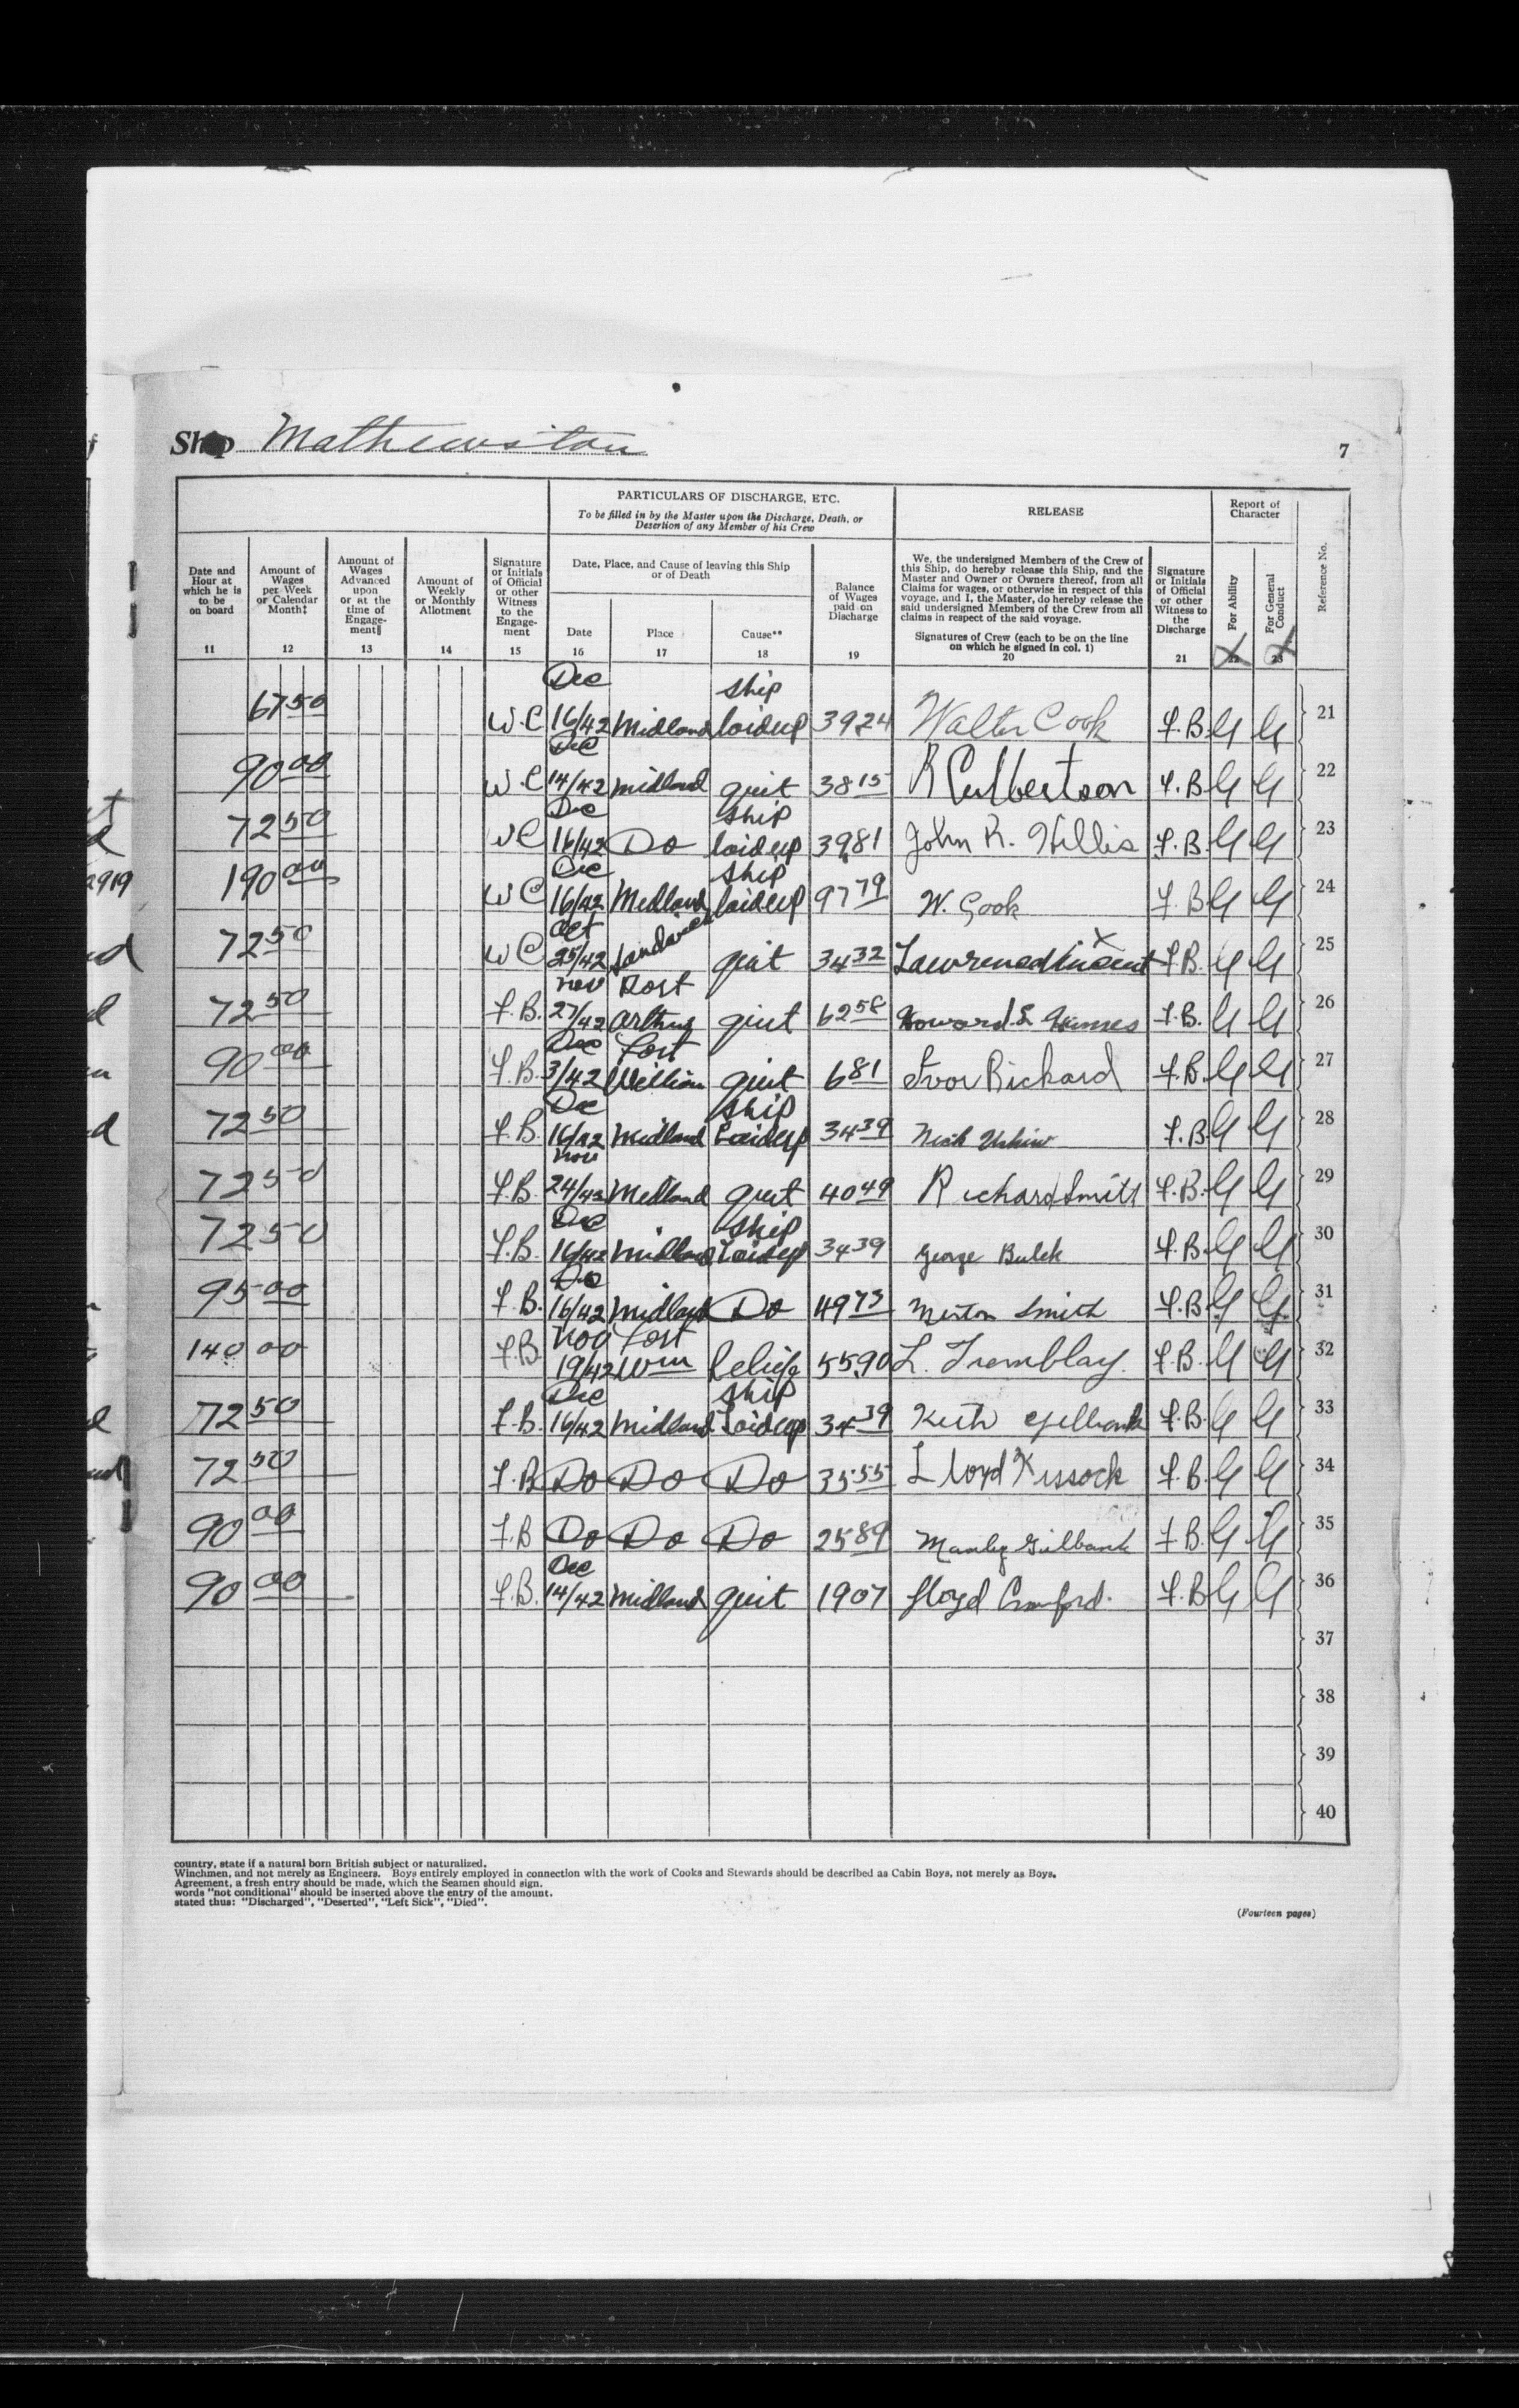 Ship Mathewston
7
PARTICULARS OF DISCHARGE, ETC.
To be filled in by the Master upon the Discharge, Death, or
Desertion of any Member of his Crew
RELEASE
Report of
Character
Date and
Hour at
which he is
to be
on board
11
Amount of
Wages
per Week
or Calendar
Month‡
12
Amount of
Wages
Advanced
upon
or at the
time of
Engage-
ment§
13
Amount of
Weekly
or Monthly
Allotment
14
Signature
or Initials
of Official
or other
Witness
to the
Engage-
ment
15
Date, Place, and Cause of leaving this Ship
or of Death
Date
16
Place
17
Cause**
18
Balance
of Wages
paid on
Discharge
19
We, the undersigned Members of the Crew of
this Ship, do hereby release this Ship, and the
Master and Owner or Owners thereof, from all
Claims for wages, or otherwise in respect of this
voyage, and I, the Master, do hereby release the
said undersigned Members of the Crew from all
claims in respect of the said voyage.
Signatures of Crew (each to be on the line
on which he signed in col. 1)
20
Signature
or Initials
of Official
or other
Witness to
the
Discharge
21
For Ability
22
For General
Conduct
23
Reference No.
67 50 W.C Dec 16/42 Midland ship laidup 39 24 Walter Cook F.B. G G 21
90 00 W.C Dec 14/42 Midland quit 38 15 R Culbertson F.B G G 22
72 50 WC Dec 16/42 Do ship laidup 39 81 John R. Hillis F.B. G G 23
190 00 WC Dec 16/42 Midland ship laidup 97 79 W. Cook F.B G G 24
72 50 WC Oct 25/42 quit 34 32 Lawrence Vincent X F.B. G G 25
72 50 F.B. Nov 27/42 Port Arthur quit 62 58 Howard F.B. G G 26
90 00 F.B. Dec 3/42 Fort William quit 6 81 Ivor Rickard F.B. G G 27
72 50 F.B. Dec 16/42 Midland ship Laidup 34 39 Nick F.B. G G 28
72 50 F.B. Nov 24/42 Midland quit 40 49 Richard Smith F.B. G G 29
72 50 F.B. Dec 16/42 Midland ship Laidup 34 39 George Bulek F.B. G G 30
95 00 F.B. Dec 16/42 Midland Do 49 73 Merton Smith F.B. G G 31
140 00 F.B. Nov 19/42 Fort Wm Relief 55.90 L. Tremblay. F.B. G G 32
72 50 F.B. Dec 16/42 Midland ship Laidup 34 39 Keith Gilbank F.B. G G 33
72 50 F.B Do Do Do 35 55 Lloyd Kissock F.B. G G 34
90 00 F.B Do Do Do 25 89 Manley Gilbank F.B. G G 35
90 00 F.B. Dec 14/42 Midland quit 19 07 Floyd Crawford. F.B G G 36
37
38
39
40
country, state if a natural born British subject or naturalized.
Winchmen, and not merely as Engineers. Boys entirely employed in connection with the work of Cooks and Stewards should be described as Cabin Boys, not merely as Boys.
Agreement, a fresh entry should be made, which the Seamen should sign.
words "not conditional" should be inserted above the entry of the amount.
stated thus: "Discharged", "Deserted", "Left Sick", "Died".
(Fourteen pages)